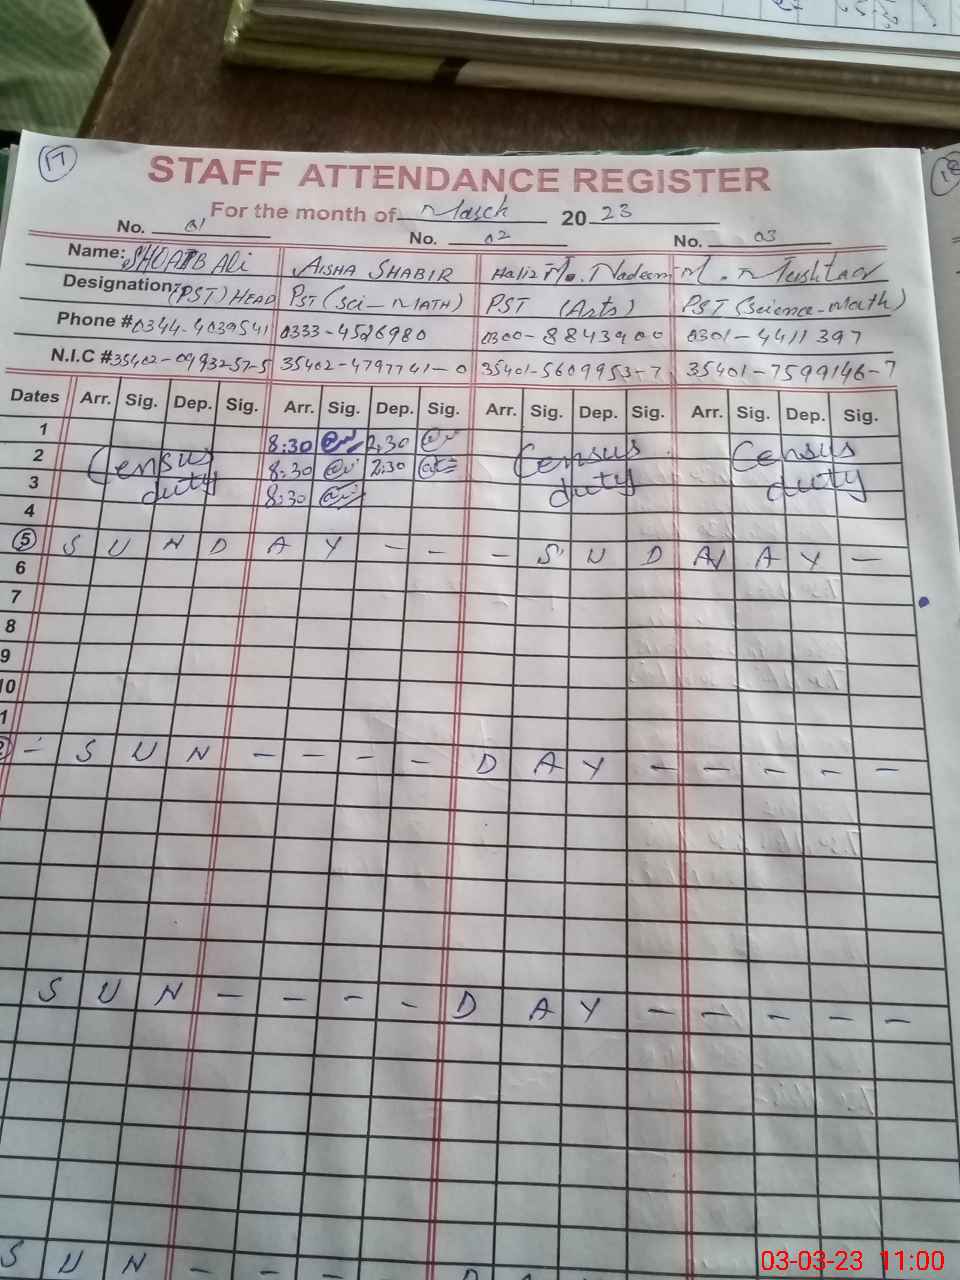 17
18
STAFF ATTENDANCE REGISTER
For the month of March 20 23
No. 01 No. 02 No. 03
Name: SHOAIB Ali AISHA SHABIR Hafiz M. Nadeem M. Mushtaq
Designation: (PST) HEAD PST (Sci-MATH) PST (Arts) PST (Science-Math)
Phone # 0344-4039541 0333-4526980 0300-8843900 0301-4411397
N.I.C # 35402-0993257-5 35402-4797741-0 35401-5609953-7 35401-7599146-7
Dates Arr. Sig. Dep. Sig. Arr. Sig. Dep. Sig. Arr. Sig. Dep. Sig. Arr. Sig. Dep. Sig.
1 8:30 2:30
2 Census 8:30 2:30 Census Census
3 duty 8:30 duty duty
4
5 S U N D A Y - - - S U D A A Y -
6
7
8
9
10
1
2 - S U N - - - - D A Y - - - - -
S U N - - - - D A Y - - - - -
S U N - - - - D A
03-03-23 11:00